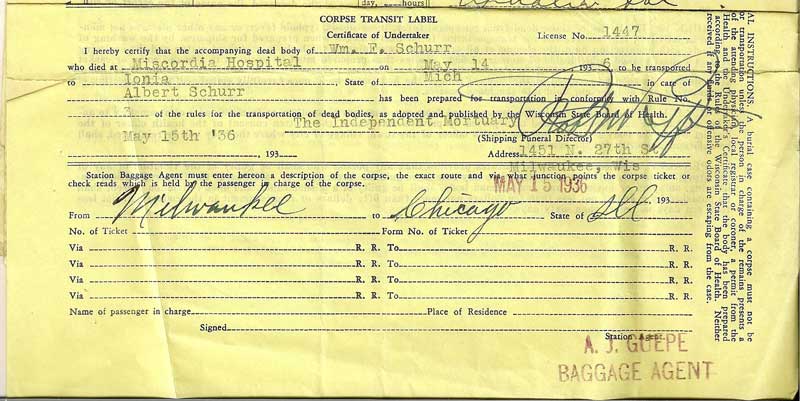 day, hours
CORPSE TRANSIT LABEL
Certificate of Undertaker License No. 1447
I hereby certify that the accompanying dead body of Wm. F. Schurr
who died at Miscordia Hospital on May 14 1936 to be transported
to Ionia, State of Mich in care of
Albert Schurr has been prepared for transportation in conformity with Rule No.
3 of the rules for the transportation of dead bodies, as adopted and published by the Wisconsin State Board of Health.
May 15th '36 The Independent Mortuary
(Shipping Funeral Director)
, 193 Address 1451 N. 27th St,
Milwaukee, Wis
Station Baggage Agent must enter hereon a description of the corpse, the exact route and via what junction points the corpse ticket or
check reads which is held by the passenger in charge of the corpse.
MAY 15 1936
, 193
From Milwaukee to Chicago State of Ill
No. of Ticket Form No. of Ticket
Via R. R. To R. R.
Via R. R. To R. R.
Via R. R. To R. R.
Via R. R. To R. R.
Name of passenger in charge Place of Residence
Signed
Station Agent.
A. J. GUEPE
BAGGAGE AGENT
AL INSTRUCTIONS. A burial case containing a corpse must not be
or transportation unless the person in charge of the remains presents a
of the attending physician, local registrar or coroner, a permit from the
Health and the Undertaker's Certificate that the body has been prepared
according to the Rules of the Wisconsin State Board of Health. Neither
received if any fluids or offensive odors are escaping from the case.